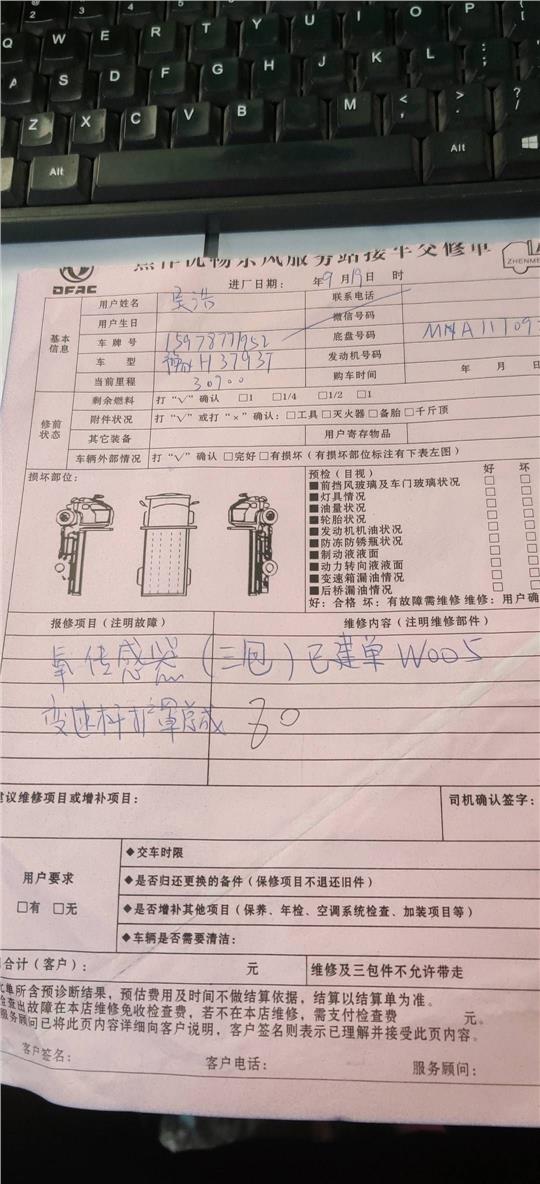 2 3 4 5 6 7 8 9
Q W E R T Y U I O P
A S D F G H J K L : ;
Z X C V B M < , > . ? /
Alt Alt
DFAC 焦作优畅东风服务站接车交修单 ZHENME
进厂日期： 年9月19日 时
基本信息 用户姓名 吴浩 联系电话
用户生日 微信号码
车牌号 15978771952 底盘号码
车型 H37937 发动机号码
当前里程 30700 购车时间 年 月 日
修前状态 剩余燃料 打“√”确认 □1 □1/4 □1/2 □1
附件状况 打“√”或打“×”确认：□工具□灭火器□备胎□千斤顶
其它装备 用户寄存物品
车辆外部情况 打“√”确认 □完好□有损坏（有损坏部位标注有下表左图）
损坏部位： 预检（目视） 好 坏
■前挡风玻璃及车门玻璃状况 □ □
■灯具情况 □ □
■油量状况 □ □
■轮胎状况 □ □
■发动机机油状况 □ □
■防冻防锈瓶状况 □ □
■制动液液面 □ □
■动力转向液液面 □ □
■变速箱漏油情况 □ □
■后桥漏油情况 □ □
好：合格 坏：有故障需维修 维修：用户确
报修项目（注明故障） 维修内容（注明维修部件）
氧传感器（三包）已建单W005
变速杆护罩总成 80
建议维修项目或增补项目： 司机确认签字：
用户要求 □有 □无
◆交车时限
◆是否归还更换的备件（保修项目不退还旧件）
◆是否增补其他项目（保养、年检、空调系统检查、加装项目等）
◆车辆是否需要清洁：
合计（客户）： 元 维修及三包件不允许带走
此单所含预诊断结果，预估费用及时间不做结算依据，结算以结算单为准。
检查出故障在本店维修免收检查费，若不在本店维修，需支付检查费 元。
服务顾问已将此页内容详细向客户说明，客户签名则表示已理解并接受此页内容。
客户签名： 客户电话： 服务顾问：